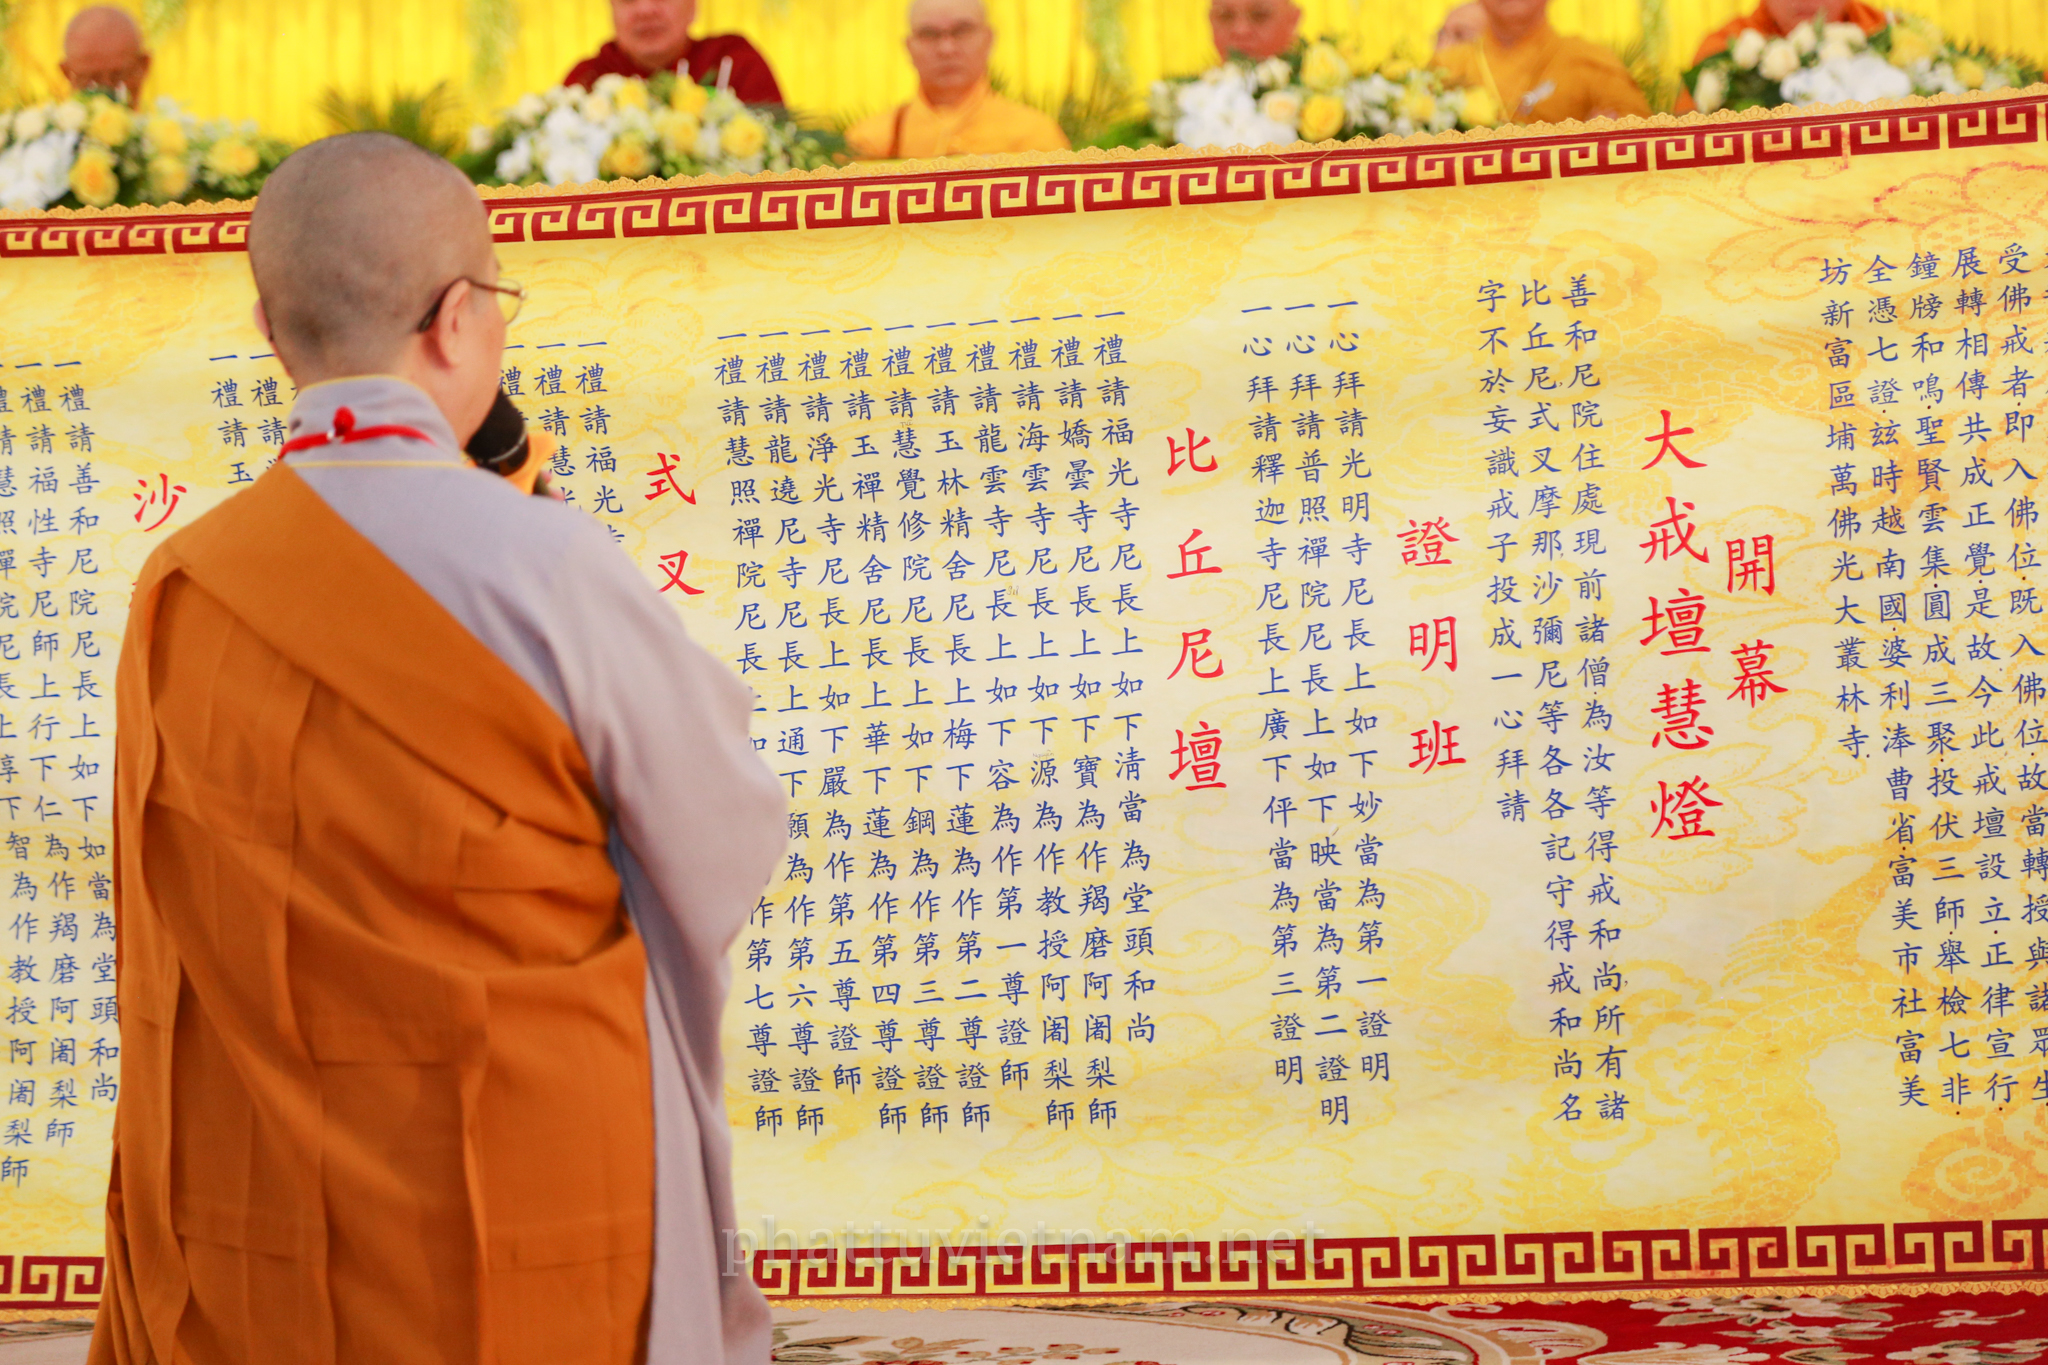 受佛戒者即入佛位既入佛位故當轉授與諸眾生
展轉相傳共成正覺是故今此戒壇設立正律宣行
鐘牓和鳴聖賢雲集圓成三聚投伏三師舉檢七非
全憑七證茲時越南國婆利湊曹省富美市社富美
坊新富區埔萬佛光大叢林寺
開幕
大戒壇慧燈
善和尼院住處現前諸僧為汝等得戒和尚所有諸
比丘尼式叉摩那沙彌尼等各各記守得戒和尚名
字不於妄識戒子投成一心拜請
證明班
一心拜請光明寺尼長上如下妙當為第一證明
一心拜請普照禪院尼長上如下映當為第二證明
一心拜請釋迦寺尼長上廣下伻當為第三證明
比丘尼壇
一禮請福光寺尼長上如下清當為堂頭和尚
一禮請嬌曇寺尼長上如下寶為作羯磨阿闍梨師
一禮請海雲寺尼長上如下源為作教授阿闍梨師
一禮請龍雲寺尼長上如下容為作第一尊證師
一禮請玉林精舍尼長上梅下蓮為作第二尊證師
一禮請慧覺修院尼長上如下鋼為作第三尊證師
一禮請玉禪精舍尼長上華下蓮為作第四尊證師
一禮請淨光寺尼長上如下嚴為作第五尊證師
一禮請龍遶尼寺尼長上通下願為作第六尊證師
一禮請慧照禪院尼長上如 作第七尊證師
式叉
一禮請福光
一禮請慧光
禮
一禮請
一禮請玉
沙
一禮請善和尼院尼長上如下如當為堂頭和尚
一禮請福性寺尼師上行下仁為作羯磨阿闍梨師
禮請慧照禪院尼長上淳下智為作教授阿闍梨師
phattuvietnam.net